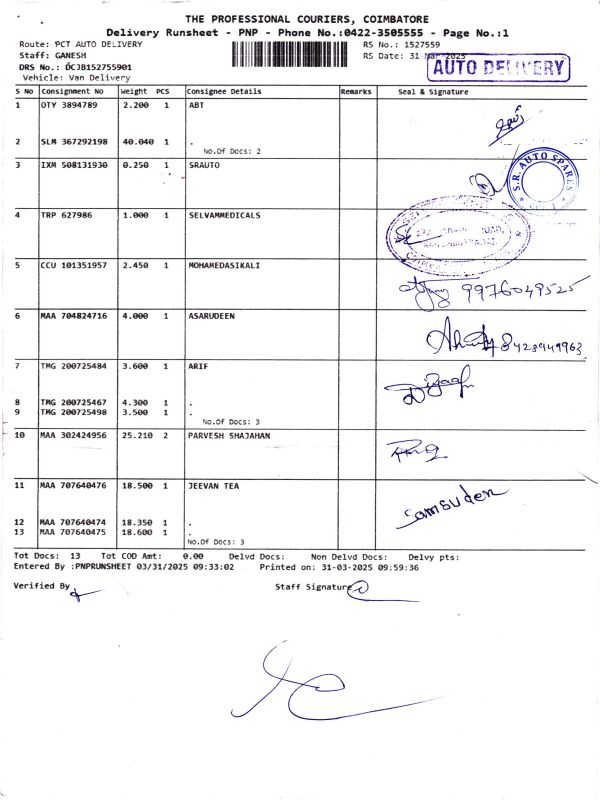 THE PROFESSIONAL COURIERS, COIMBATORE
Delivery Runsheet - PNP - Phone No.:0422-3505555 - Page No.:1
Route: PCT AUTO DELIVERY
RS No.: 1527559
Staff: GANESH
RS Date: 31-Mar-2025
DRS No.: DCJB152755901
AUTO DELIVERY
Vehicle: Van Delivery
S No Consignment No Weight PCS Consignee Details Remarks Seal & Signature
1 OTY 3894789 2.200 1 ABT
2 SLM 367292198 40.040 1 .
No.Of Docs: 2
3 IXM 508131930 0.250 1 SRAUTO
S.R. AUTO SPARES
4 TRP 627986 1.000 1 SELVAMMEDICALS
5 CCU 101351957 2.450 1 MOHAMEDASIKALI
9976049525
6 MAA 704824716 4.000 1 ASARUDEEN
8428949963
7 TMG 200725484 3.600 1 ARIF
8 TMG 200725467 4.300 1 .
9 TMG 200725498 3.500 1 .
No.Of Docs: 3
10 MAA 302424956 25.210 2 PARVESH SHAJAHAN
11 MAA 707640476 18.500 1 JEEVAN TEA
Samsuden
12 MAA 707640474 18.350 1 .
13 MAA 707640475 18.600 1 .
No.Of Docs: 3
Tot Docs: 13 Tot COD Amt: 0.00 Delvd Docs: Non Delvd Docs: Delvy pts:
Entered By :PNPRUNSHEET 03/31/2025 09:33:02 Printed on: 31-03-2025 09:59:36
Verified By
Staff Signature